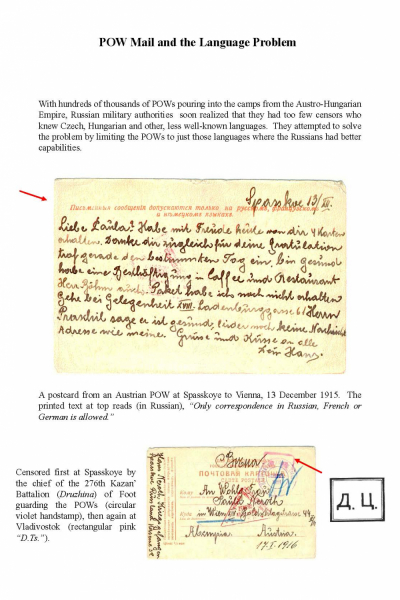 POW Mail and the Language Problem
With hundreds of thousands of POWs pouring into the camps from the Austro-Hungarian
Empire, Russian military authorities soon realized that they had too few censors who
knew Czech, Hungarian and other, less well-known languages. They attempted to solve
the problem by limiting the POWs to just those languages where the Russians had better
capabilities.
Spasskoe 13/XII.
Письменныя сообщенія допускаются только на русскомъ, французскомъ
и нѣмецкомъ языкахъ.
Liebe Paula! Habe mit Freude heute von dir 4 Karten
erhalten. Danke dir zugleich für deine Gratulation
traf gerade den bestimmten Tag ein, bin gesund
habe eine Beschäftigung in Caffee und Restaurant
Herr Böhm auch. Paket habe ich noch nicht erhalten
Gehe bei Gelegenheit XVIII. Ladenburggasse 61 Herrn
sage er ist gesund, leider noch keine Nachricht
Adresse wie meine. Grüsse und Küsse an alle
dein Hans.
A postcard from an Austrian POW at Spasskoye to Vienna, 13 December 1915. The
printed text at top reads (in Russian), “Only correspondence in Russian, French or
German is allowed.”
Censored first at Spasskoye by
the chief of the 276th Kazan’
Battalion (Druzhina) of Foot
guarding the POWs (circular
violet handstamp), then again at
Vladivostok (rectangular pink
“D.Ts.”).
Вѣна
ПОЧТОВАЯ КАРТОЧКА
An
Wien
Австрія Austria
17.I.1916
Д. Ц.